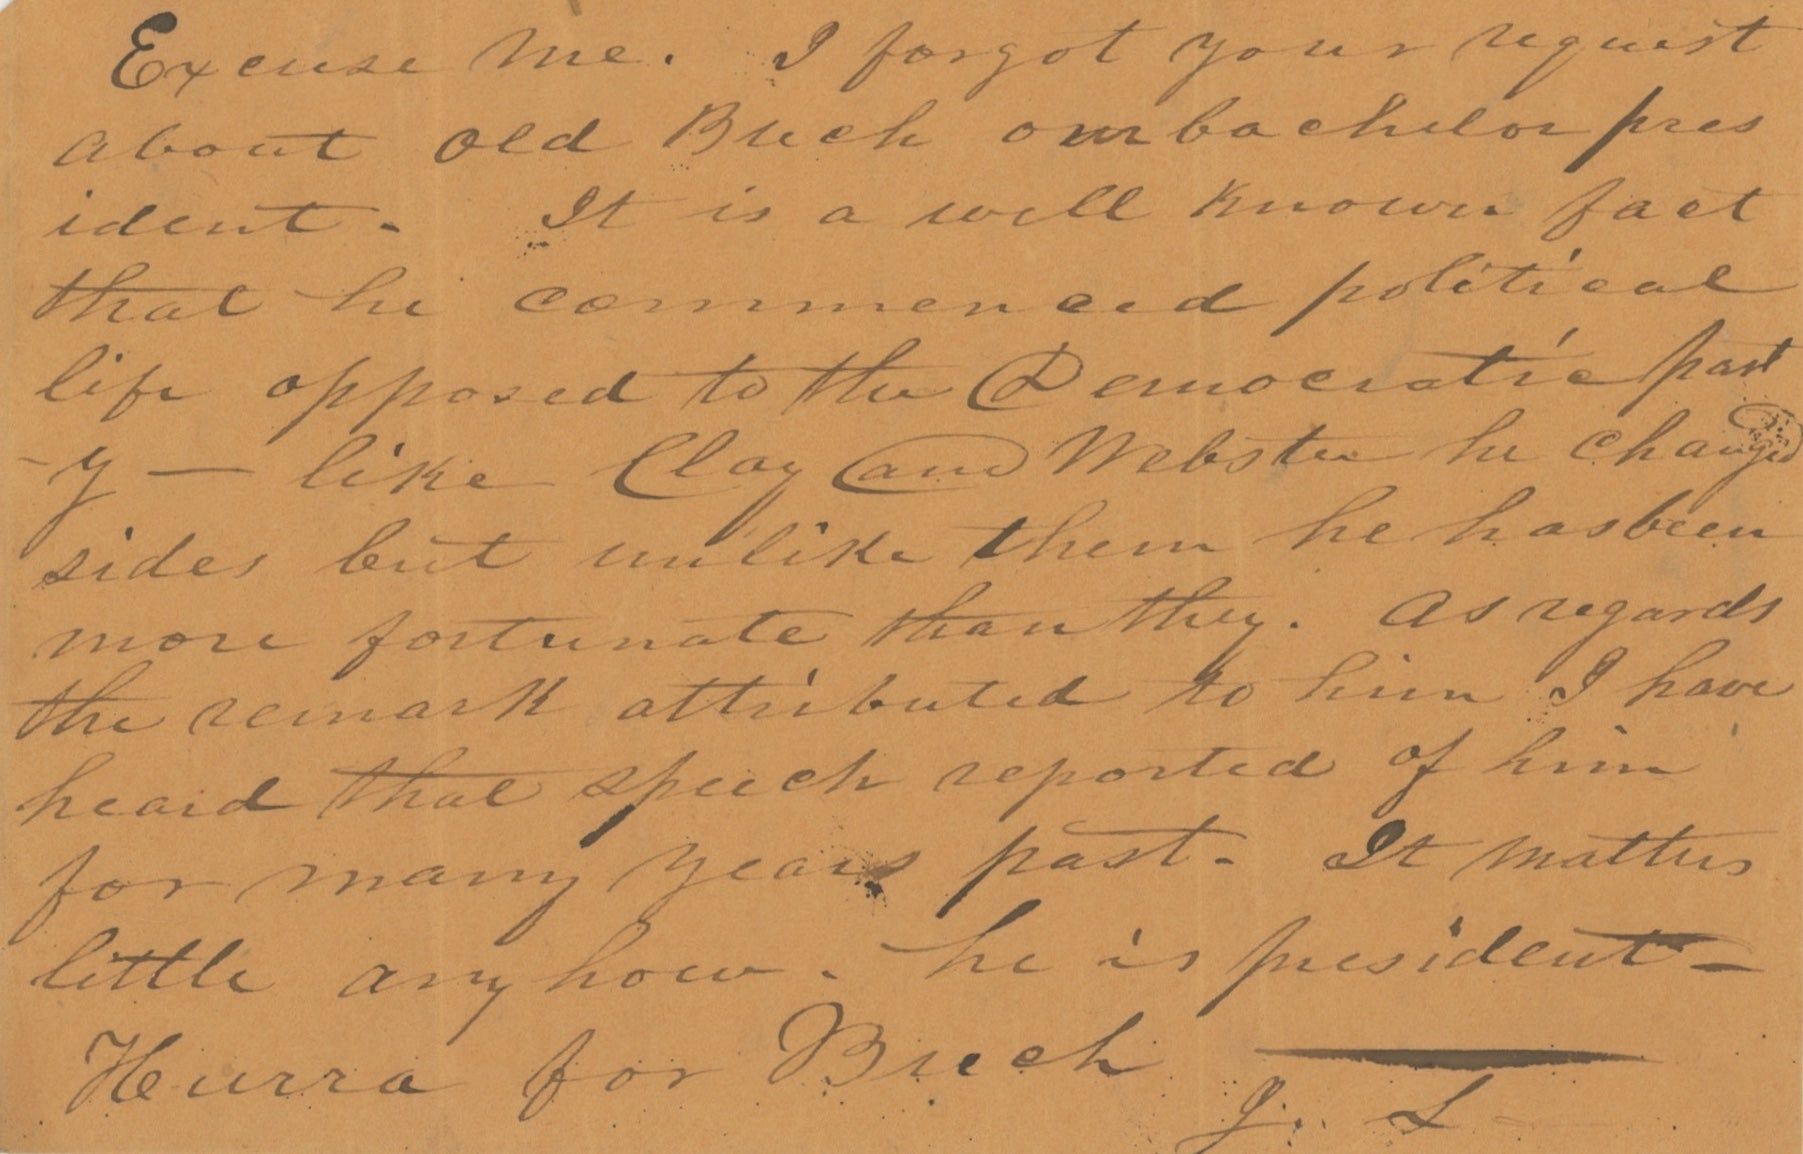 Excuse me. I forgot your request
about old Buch our bachelor pres
ident. It is a well known fact
that he commenced political
life opposed to the Democratic part
-y — like Clay and Webster he changed
sides but unlike them he has been
more fortunate than they. As regards
the remark attributed to him I have
heard that speech reported of him
for many years past. It matters
little anyhow. he is president -
Hurra for Buch
J. L